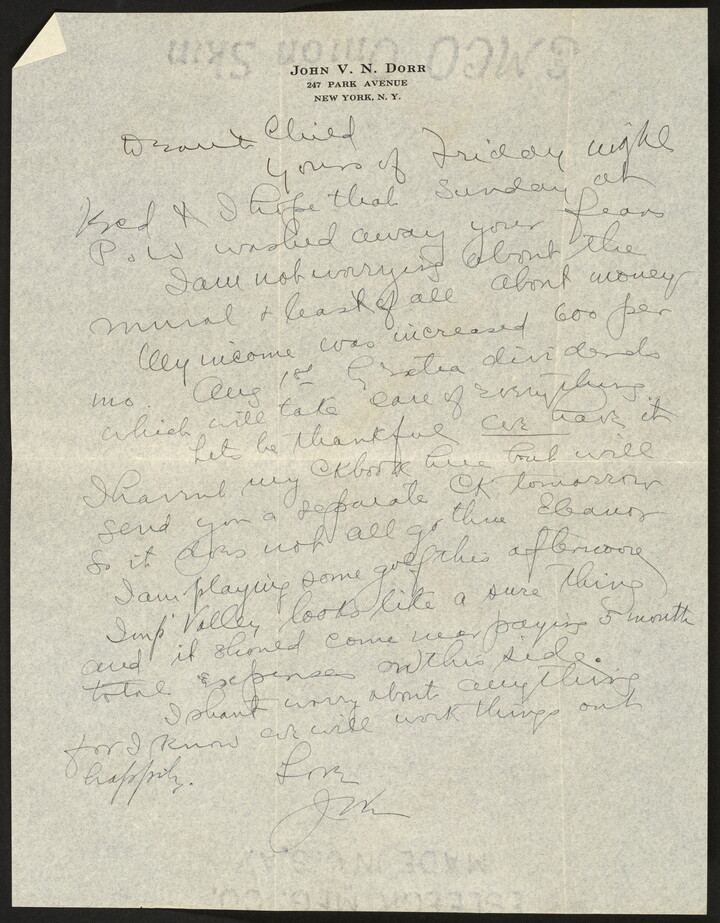 EMCO Onion Skin
JOHN V. N. DORR
247 PARK AVENUE
NEW YORK, N. Y.
Dearest Child
Yours of Friday night
Recd & I hope that Sunday at
P. o. W washed away your fears
I am not worrying about the
mural & least of all about money
My income was increased 600 per
mo. Aug 1st & Extra dividends
which will take care of everything.
Lets be thankful we have it
I havent my ckbook here but will
send you a separate CK tomorrow
So it does not all go thru Eleanor
I am playing some golf this afternoon
Imp' Valley looks like a sure thing
and it should come near paying 5 month
total expenses on this side.
I shant worry about anything
for I know we will work things out
happily.
Love
Jack
MADE IN U.S.A.
ESLEECK MFG. CO.